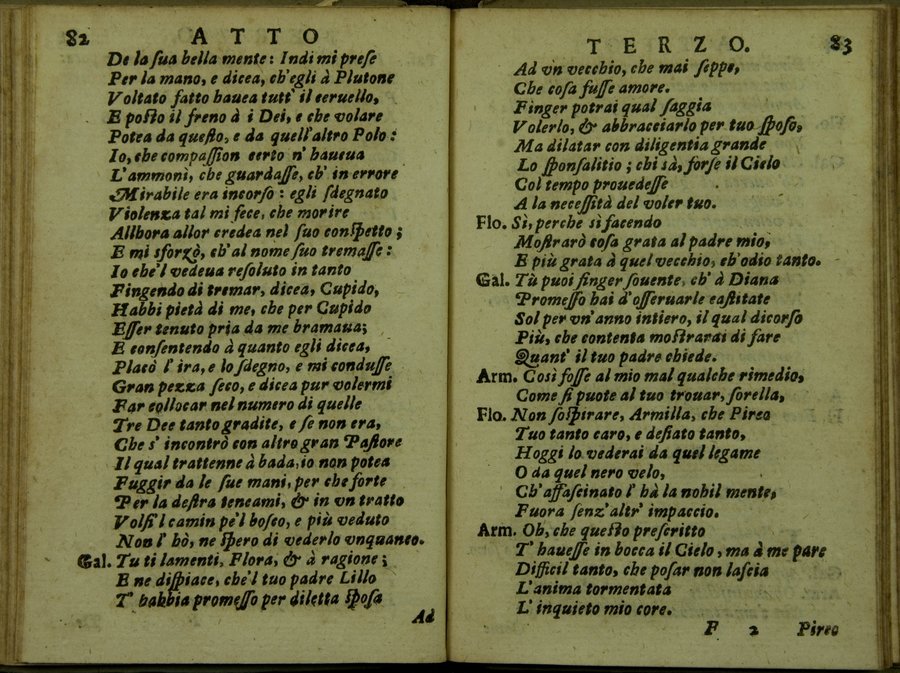 82 ATTO
De la ſua bella mente: Indi mi preſe
Per la mano, e dicea, ch'egli à Plutone
Voltato fatto hauea tutt' il ceruello,
E poſto il freno à i Dei, e che volare
Potea da queſto, e da quell'altro Polo:
Io, che compaſſion certo n' haueua
L'ammonì, che guardaſſe, ch' in errore
Mirabile era incorſo: egli ſdegnato
Violenza tal mi fece, che morire
Allhora allor credea nel ſuo conſpetto;
E mi sforzò, ch'al nome ſuo tremaſſe:
Io che'l vedeua reſoluto in tanto
Fingendo di tremar, dicea, Cupido,
Habbi pietà di me, che per Cupido
Eſſer tenuto pria da me bramaua;
E conſentendo à quanto egli dicea,
Placò l' ira, e lo ſdegno, e mi conduſſe
Gran pezza ſeco, e dicea pur volermi
Far collocar nel numero di quelle
Tre Dee tanto gradite, e ſe non era,
Che s' incontrò con altro gran Paſtore
Il qual trattenne à bada, io non potea
Fuggir da le ſue mani, per che forte
Per la deſtra teneami, & in vn tratto
Volſi'l camin pe'l boſco, e più veduto
Non l' hò, ne ſpero di vederlo vnquanco.
Gal. Tu ti lamenti, Flora, & à ragione;
E ne diſpiace, che'l tuo padre Lillo
T' habbia promeſſo per diletta ſpoſa
Ad
TERZO. 83
Ad vn vecchio, che mai ſeppe,
Che coſa fuſſe amore.
Finger potrai qual ſaggia
Volerlo, & abbracciarlo per tuo ſpoſo,
Ma dilatar con diligentia grande
Lo ſponſalitio; chi sà, forſe il Cielo
Col tempo prouedeſſe
A la neceſſità del voler tuo.
Flo. Sì, perche sì facendo
Moſtrarò coſa grata al padre mio,
E più grata à quel vecchio, ch'odio tanto.
Gal. Tù puoi finger ſouente, ch' à Diana
Promeſſo hai d'oſſeruarle caſtitate
Sol per vn'anno intiero, il qual dicorſo
Più, che contenta moſtrarai di fare
Quant' il tuo padre chiede.
Arm. Così foſſe al mio mal qualche rimedio,
Come ſi puote al tuo trouar, ſorella,
Flo. Non ſoſpirare, Armilla, che Pireo
Tuo tanto caro, e deſiato tanto,
Hoggi lo vederai da quel legame
O da quel nero velo,
Ch'affaſcinato l' hà la nobil mente,
Fuora ſenz'altr' impaccio.
Arm. Oh, che queſto preſcritto
T' haueſſe in bocca il Cielo, ma à me pare
Difficil tanto, che poſar non laſcia
L'anima tormentata
L' inquieto mio core.
F 2 Pireo